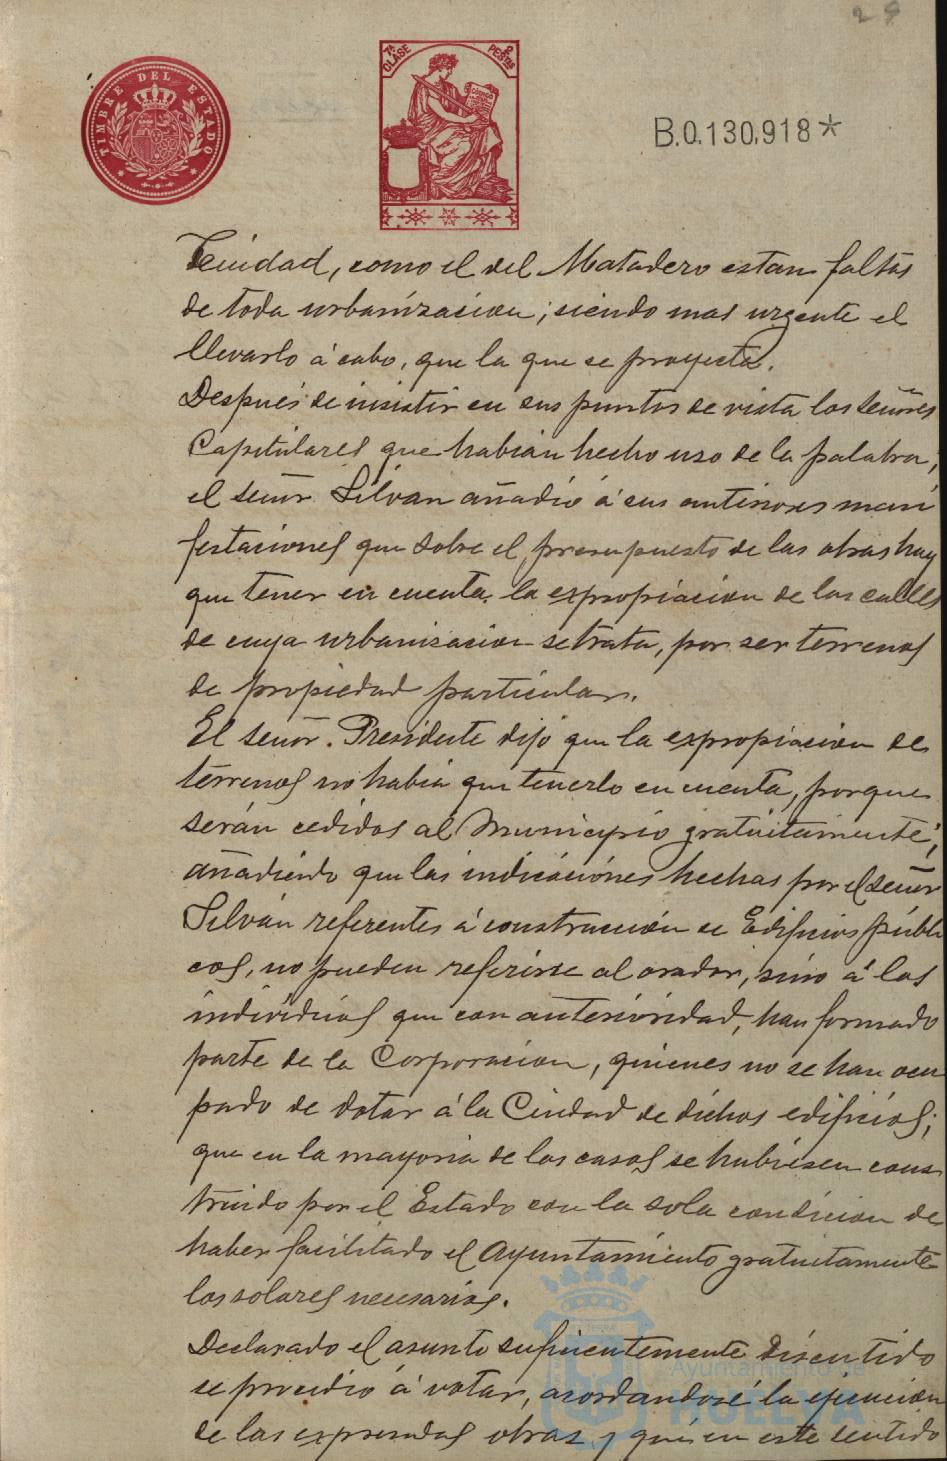 29
TIMBRE DEL ESTADO
7ª CLASE 2 PESTAS
B.0.130.918*
Trinidad, como el del Matadero estan faltas
de toda urbanización; siendo mas urgente el
llevarlo á cabo, que la que se proyecta.
Después de insistir en sus puntos de vista los señores
Capitulares que habían hecho uso de la palabra;
el señor Silván añadió á sus anteriores mani
festaciones que sobre el presupuesto de las obras hay
que tener en cuenta la expropiación de las calles
de cuya urbanización se trata, por ser terrenos
de propiedad particular.
El señor Presidente dijo que la expropiación de
terrenos no había que tenerlo en cuenta, porque
serán cedidos al Municipio gratuitamente;
añadiendo que las indicaciónes hechas por el señor
Silván referentes á construcción de Edificios públi
cos, no pueden referirse al orador, sino á los
individuos que con anterióridad, han formado
parte de la Corporacion, quienes no se han ocu
pado de dotar á la Ciudad de dichos edificios;
que en la mayoria de los casos se hubiesen cons
truido por el Estado con la sola condicion de
haber facilitado el Ayuntamiento gratuitamente
los solares necesarios.
Declarado el asunto suficientemente discutido
se procedió á votar, acordandose la ejecución
de las expresadas obras y que en este sentido
Ayuntamiento de
HUELVA